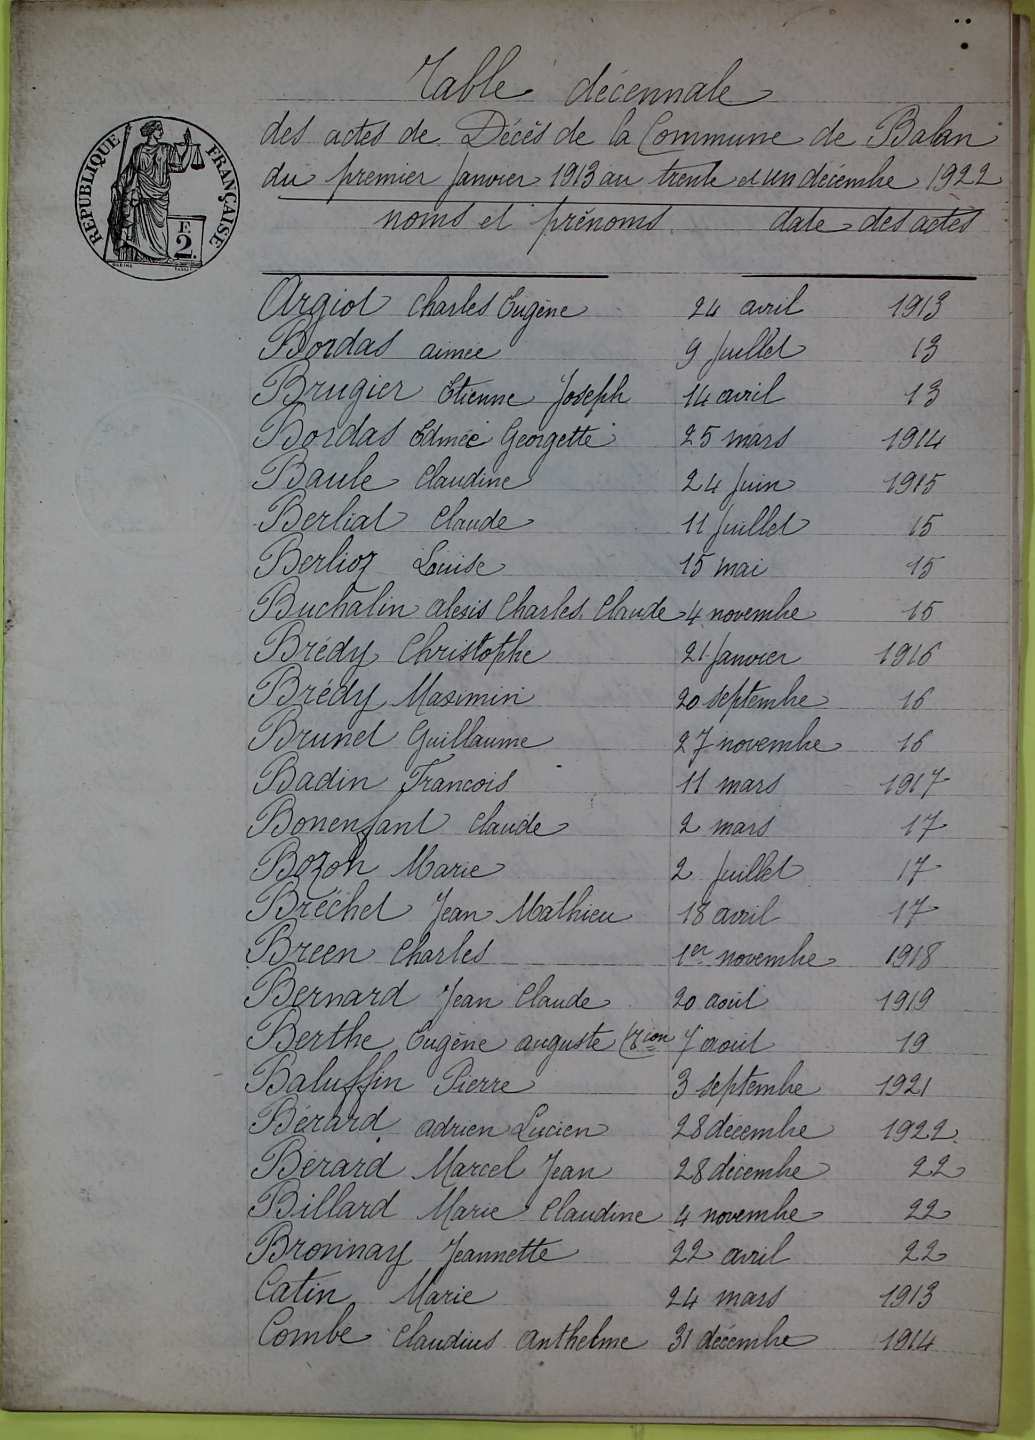 Table décennale
des actes de Décès de la Commune de Balan
du premier Janvier 1913 au trente et un décembre 1922
RÉPUBLIQUE FRANÇAISE
2F
noms et prénoms date des actes
Argiot Charles Eugène 24 avril 1913
Bordas aimée 9 Juillet 13
Brugier Etienne Joseph 14 avril 13
Bordas Edmée Georgette 25 mars 1914
Baule Claudine 24 Juin 1915
Berliat Claude 11 Juillet 15
Berlioz Louise 15 mai 15
Buchalin alexis Charles Claude 4 novembre 15
Brédy Christophe 21 Janvier 1916
Brédy Maximin 20 septembre 16
Brunet Guillaume 27 novembre 16
Badin Francois 11 mars 1917
Bonenfant Claude 2 mars 17
Bozon Marie 2 Juillet 17
Bréchet Jean Mathieu 18 avril 17
Breen Charles 1er novembre 1918
Bernard Jean Claude 20 août 1919
Berthe Eugène auguste 7 aout 19
Baluffin Pierre 3 septembre 1921
Bérard adrien Lucien 28 décembre 1922
Bérard Marcel Jean 28 décembre 22
Billard Marie Claudine 4 novembre 22
Bronnay Jeannette 22 avril 22
Catin Marie 24 mars 1913
Combe Claudius Anthelme 31 décembre 1914